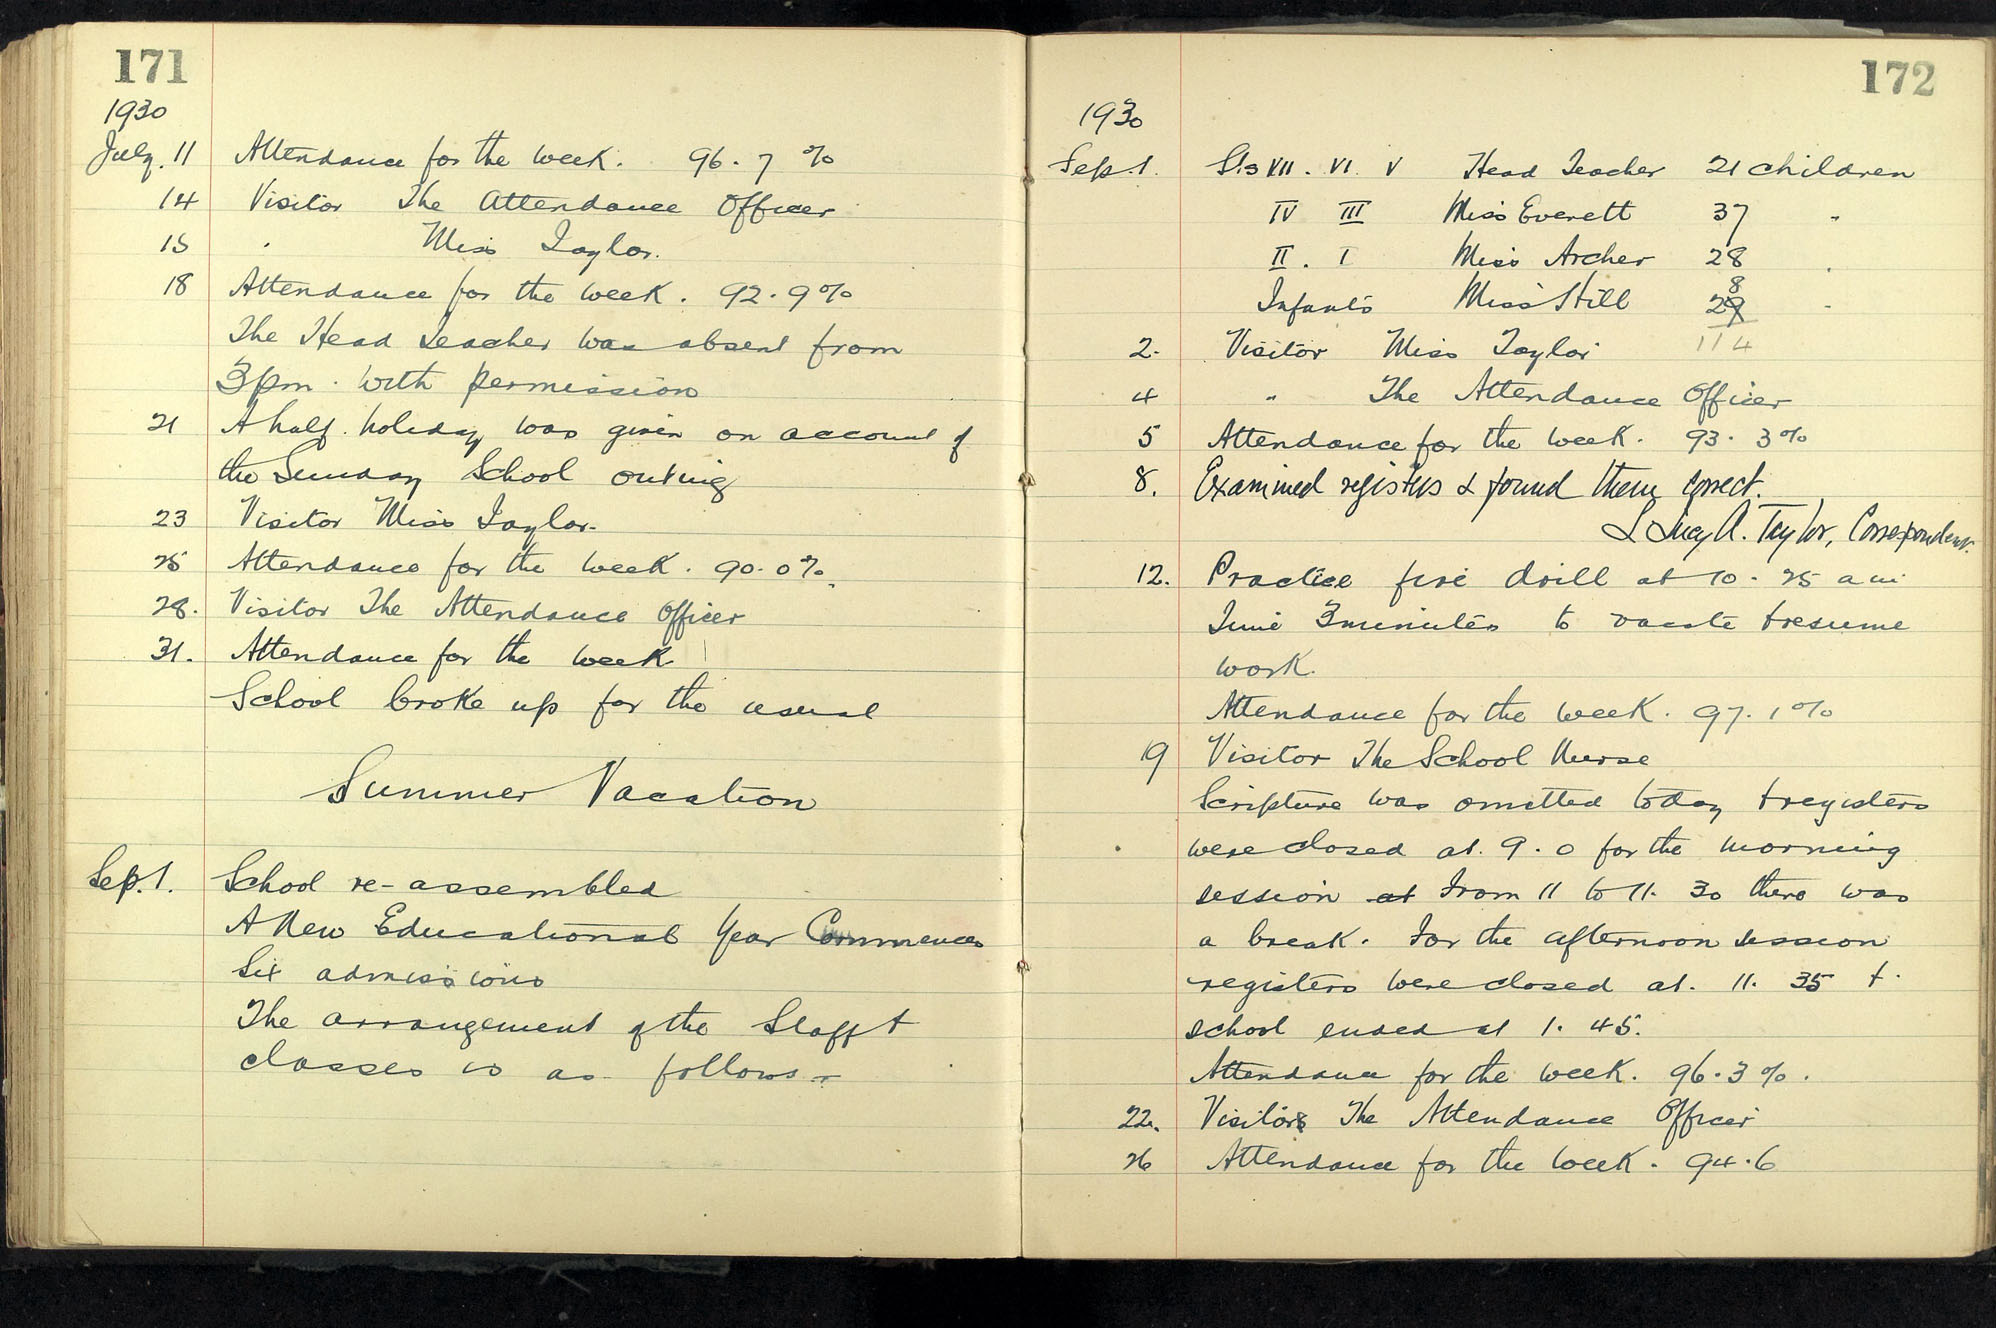 171
1930
July. 11 Attendance for the week. 96.7 %
14 Visitor The Attendance Officer
15 " Miss Taylor.
18 Attendance for the week. 92.9%
The Head Teacher was absent from
3pm. with permission
21 A half. holiday was given on account of
the Sunday School outing
23 Visitor Miss Taylor.
25 Attendance for the week. 90.0%
28. Visitor The Attendance Officer
31. Attendance for the week
School broke up for the usual
Summer Vacation
Sep. 1. School re-assembled
A New Educational Year Commences
Six admissions
The arrangement of the Staff +
classes is as follows:-
172
1930
Sep 1. Sts VII. VI. V Head Teacher 21 children
IV III Miss Everett 37 "
II. I Miss Archer 28 "
Infants Miss Hill 28 "
114
2. Visitor Miss Taylor
4 " The Attendance Officer
5 Attendance for the week. 93.3%
8. Examined registers & found them correct.
Lucy A. Taylor, Correspondent.
12. Practice fire drill at 10.25 am
Time 3 minutes to vacate + resume
work.
Attendance for the week. 97.1%
19 Visitor The School Nurse
Scripture was omitted today + registers
were closed at. 9.0 for the morning
session at From 11 to 11.30 there was
a break. For the afternoon session
registers were closed at. 11.35 +.
school ended at 1.45.
Attendance for the week. 96.3%.
22. Visitors The Attendance Officer
26 Attendance for the week. 94.6